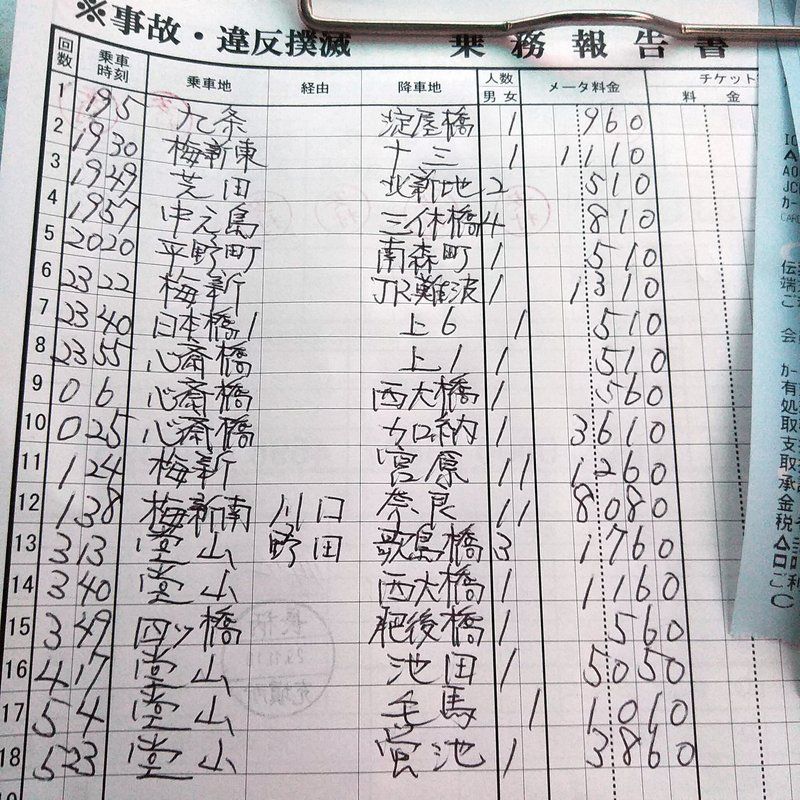 ※事故・違反撲滅 乗務報告書
回数 乗車時刻 乗車地 経由 降車地 人数 男 女 メータ料金 チケット 料金
1 19 5 九条 淀屋橋 1 960
2 19 30 梅新東 十三 1 1110
3 19 49 芝田 北新地 2 510
4 19 57 中之島 三休橋 4 810
5 20 20 平野町 南森町 1 510
6 23 22 梅新 JR難波 1 1310
7 23 40 日本橋1 上6 1 510
8 23 55 心斎橋 上1 1 510
9 0 6 心斎橋 西大橋 1 560
10 0 25 心斎橋 加納 1 3610
11 1 24 梅新 宮原 1 1 1260
12 1 38 梅新南 川口 奈良 1 1 8080
13 3 13 堂山 野田 歌島橋 3 1760
14 3 40 堂山 西大橋 1 1160
15 3 49 四ッ橋 肥後橋 1 560
16 4 17 堂山 池田 1 5050
17 5 4 堂山 毛馬 1 1010
18 5 23 堂山 蛍池 1 3860